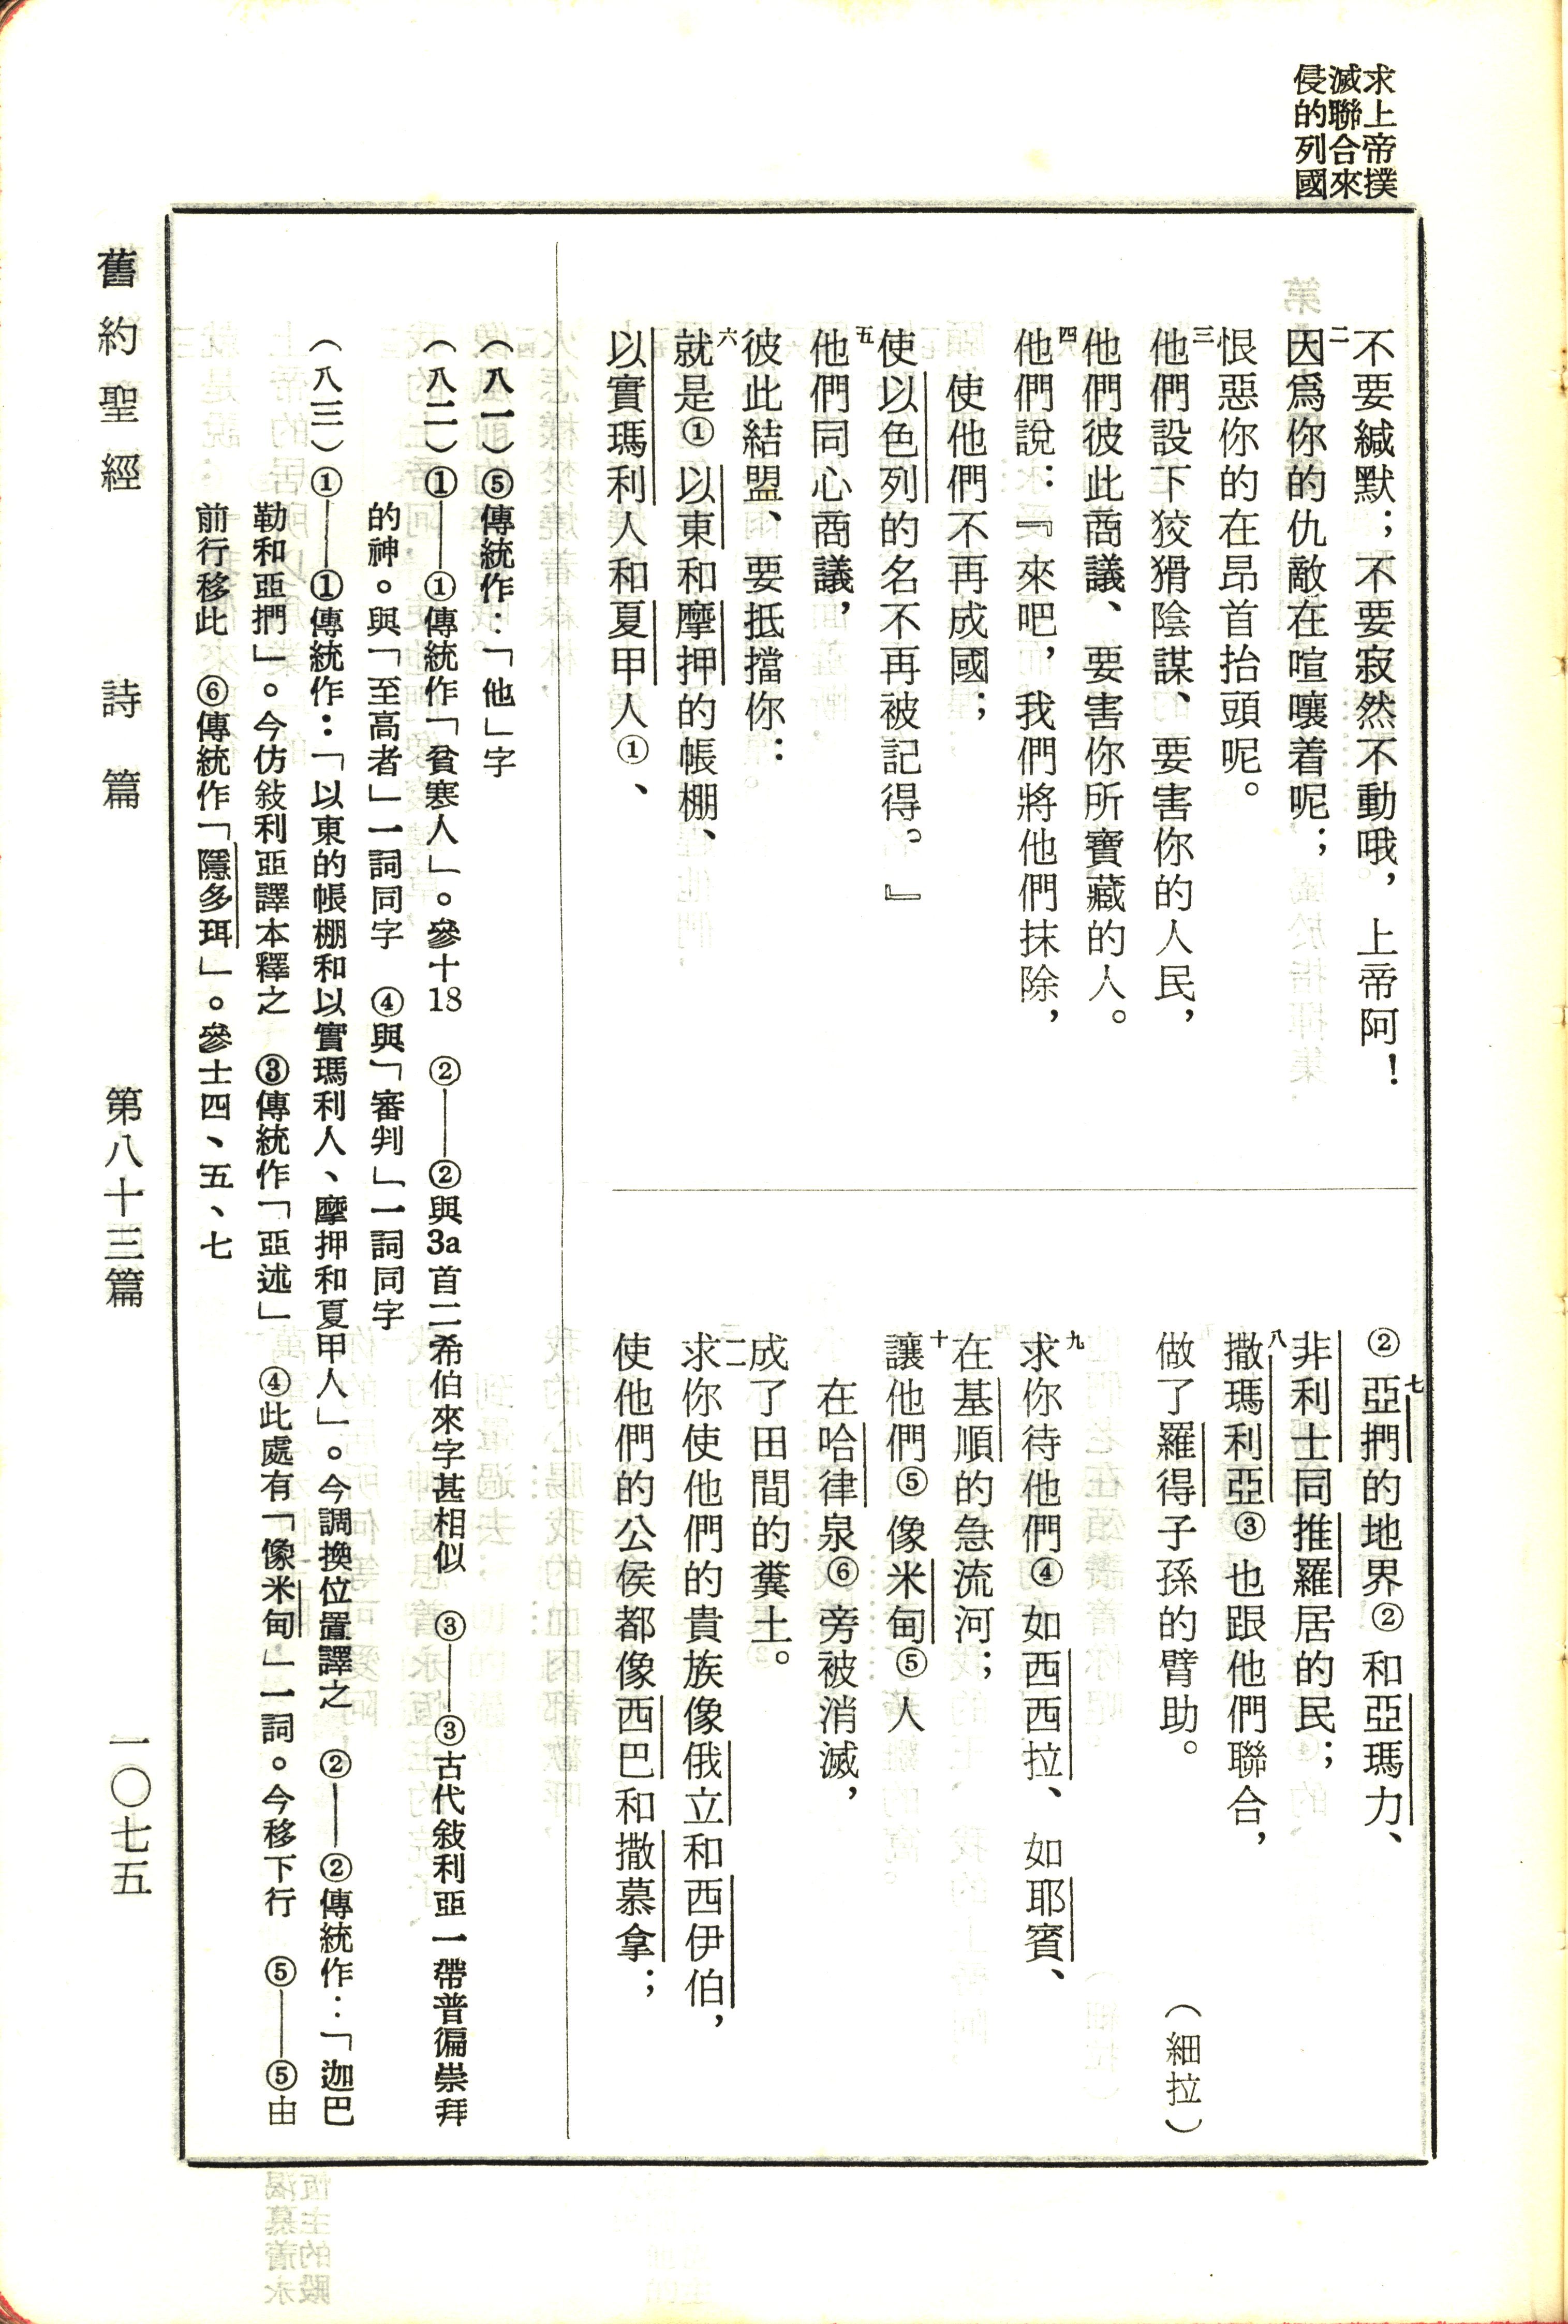 求上帝撲
滅聯合來
侵的列國
不要緘默；不要寂然不動哦，上帝阿！
二因爲你的仇敵在喧嚷着呢；
恨惡你的在昂首抬頭呢。
三他們設下狡猾陰謀、要害你的人民，
他們彼此商議、要害你所寶藏的人。
四他們說：『來吧，我們將他們抹除，
使他們不再成國；
使以色列的名不再被記得。』
五他們同心商議，
彼此結盟、要抵擋你：
六就是①以東和摩押的帳棚、
以實瑪利人和夏甲人①、
七②亞捫的地界②和亞瑪力、
非利士同推羅居的民；
八撒瑪利亞③也跟他們聯合，
做了羅得子孫的臂助。（細拉）
九求你待他們④如西西拉、如耶賓、
在基順的急流河；
十讓他們⑤像米甸⑤人
在哈律泉⑥旁被消滅，
成了田間的糞土。
一一求你使他們的貴族像俄立和西伊伯，
使他們的公侯都像西巴和撒慕拿；
（八一）⑤傳統作：「他」字
（八二）①——①傳統作「貧寒人」。參十18　②——②與3a首二希伯來字甚相似　③——③古代敍利亞一帶普徧崇拜
的神。與「至高者」一詞同字　④與「審判」一詞同字
（八三）①——①傳統作：「以東的帳棚和以實瑪利人、摩押和夏甲人」。今調換位置譯之　②——②傳統作：「迦巴
勒和亞捫」。今仿敍利亞譯本釋之　③傳統作「亞述」　④此處有「像米甸」一詞。今移下行　⑤——⑤由
前行移此　⑥傳統作「隱多珥」。參士四、五、七
舊約聖經　詩篇　第八十三篇　一〇七五